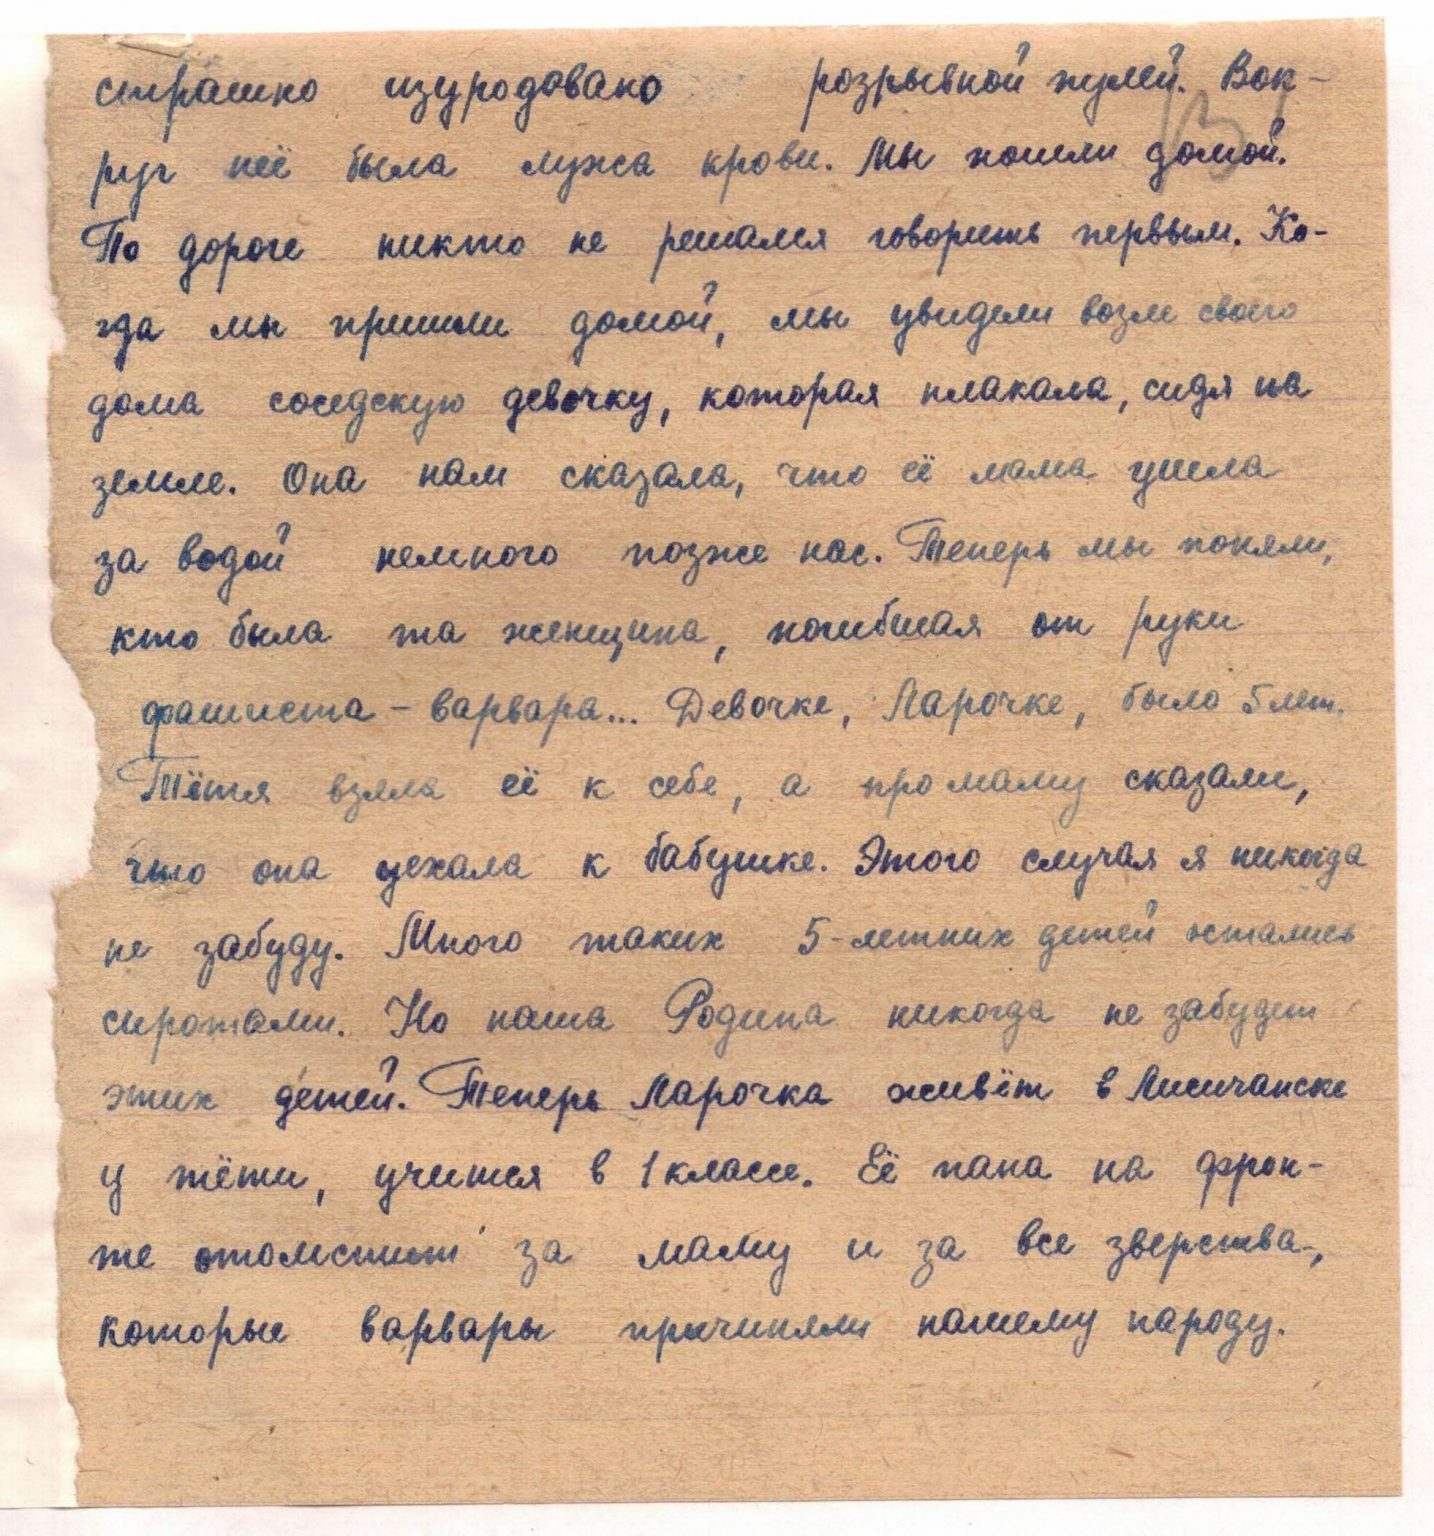 страшно изуродовано розрывной пулей. Вок-
руг неё была лужа крови. Мы пошли домой.
По дороге никто не решался говорить первым. Ко-
гда мы пришли домой, мы увидели возле своего
дома соседскую девочку, которая плакала, сидя на
земле. Она нам сказала, что её мама ушла
за водой немного позже нас. Теперь мы поняли,
кто была та женщина, погибшая от руки
фашиста-варвара... Девочке, Ларочке, было 5 лет.
Тётя взяла её к себе, а про маму сказали,
что она уехала к бабушке. Этого случая я никогда
не забуду. Много таких 5-летних детей остались
сиротами. Но наша Родина никогда не забудет
этих детей. Теперь Ларочка живёт в Лисичанске
у тёти, учится в 1 классе. Её папа на фрон-
те отомстит за маму и за все зверства,
которые варвары причиняли нашему народу.